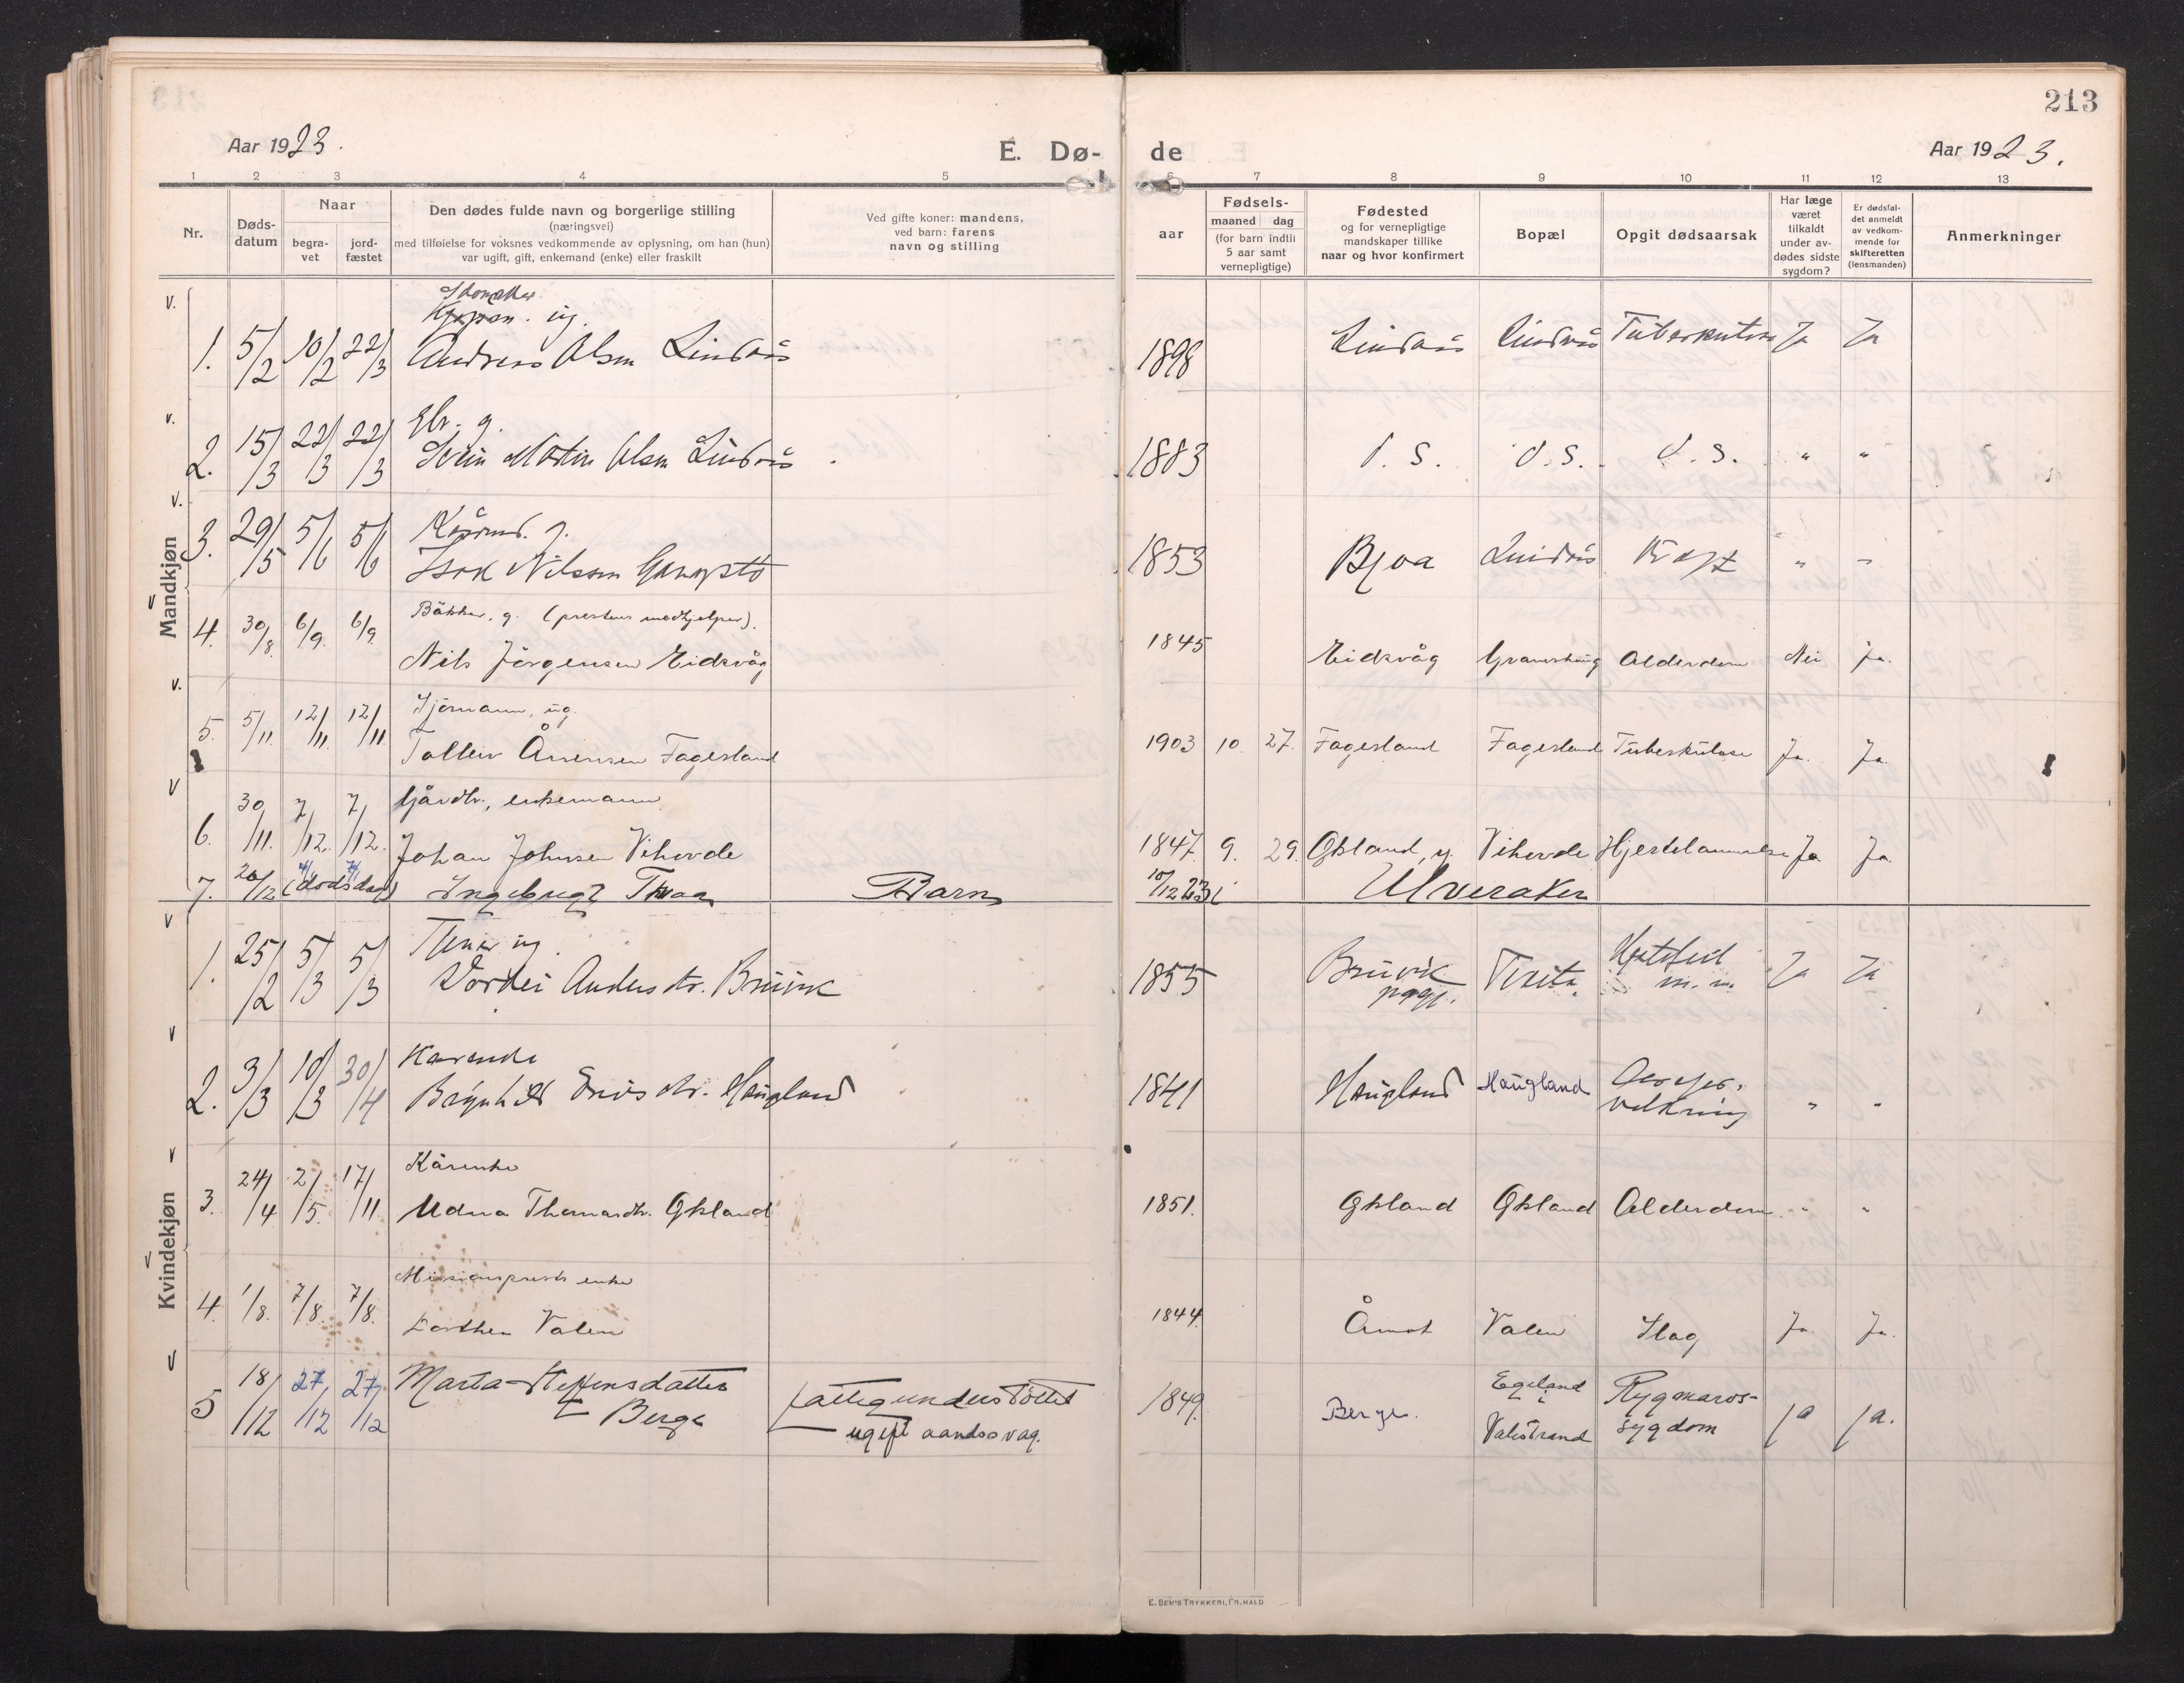 213
Aar 1923.
E. Dø-
de
Aar 1923.
1 2 3 4 5 6 7 8 9 10 11 12 13
Nr.
Døds-
datum
Naar
begra-
vet
jord-
fæstet
Den dødes fulde navn og borgerlige stilling
(næringsvei)
med tilføielse for voksnes vedkommende av oplysning, om han (hun)
var ugift, gift, enkemand (enke) eller fraskilt
Ved gifte koner: mandens,
ved barn: farens
navn og stilling
aar
Fødsels-
maaned dag
(for barn indtil
5 aar samt
vernepligtige)
Fødested
og for vernepligtige
mandskaper tillike
naar og hvor konfirmert
Bopæl
Opgit dødsaarsak
Har læge
været
tilkaldt
under av-
dødes sidste
sygdom?
Er dødsfal-
det anmeldt
av vedkom-
mende for
skifteretten
(lensmanden)
Anmerkninger
Mandkjøn
ug.
1. 5/2 10/2 22/3 Andreas Olsen Lindøis 1898 Lindøis Lindøis Tuberkulose Ja Ja
Gbr. g.
2. 15/3 22/3 22/3 Martin Olsen Lindøis 1883 d. s. d. s. d. s. " "
g.
3. 29/5 5/6 5/6 Isak Nilssen 1853 Bjoa Lindøis " "
g. (prestens medhjelper).
4. 30/8. 6/9. 6/9. Nils Jørgensen Eidsvåg 1845 Eidsvåg Alderdom Nei Ja.
Sjømann, ug.
5. 5/11. 12/11. 12/11. Tolleiv Ånensen Fagerland 1903 10. 27. Fagerland Fagerland Tuberkulose Ja. Ja.
Gårdbr., enkemann
6. 30/11. 7/12. 7/12. Johan Johnsen Vihovde 1847. 9. 29. Økland, y. Vihovde Hjertelammelse Ja Ja
7. 20/12 (dødsdag) Barn 10/12 23 i Ulveraker
Kvindekjøn
ug.
1. 25/2 5/3 5/3 Anders dr. Bruvik 1855 Bruvik Tveita m. m. Ja Ja
2. 3/3 10/3 30/4 Brynhild dtr. Haugland 1841 Haugland Haugland " "
Kårenke
3. 24/4 2/5. 17/11 Thomasdtr. Økland 1851. Økland Økland Alderdom " "
Missionsprests enke
4. 1/8. 7/8. 7/8. Dorthea Valen 1844. Åmot Valen Slag Ja. Ja.
5 18/12 27/12 27/12 Marta Steffensdatter
Berge
fattigunderstøttet
ugift aandssvag.
1849. Berge. Egeland
i
Valestrand
Rygmarvs-
sygdom
ja ja.
E. SEM'S TRYKKERI, FR.HALD